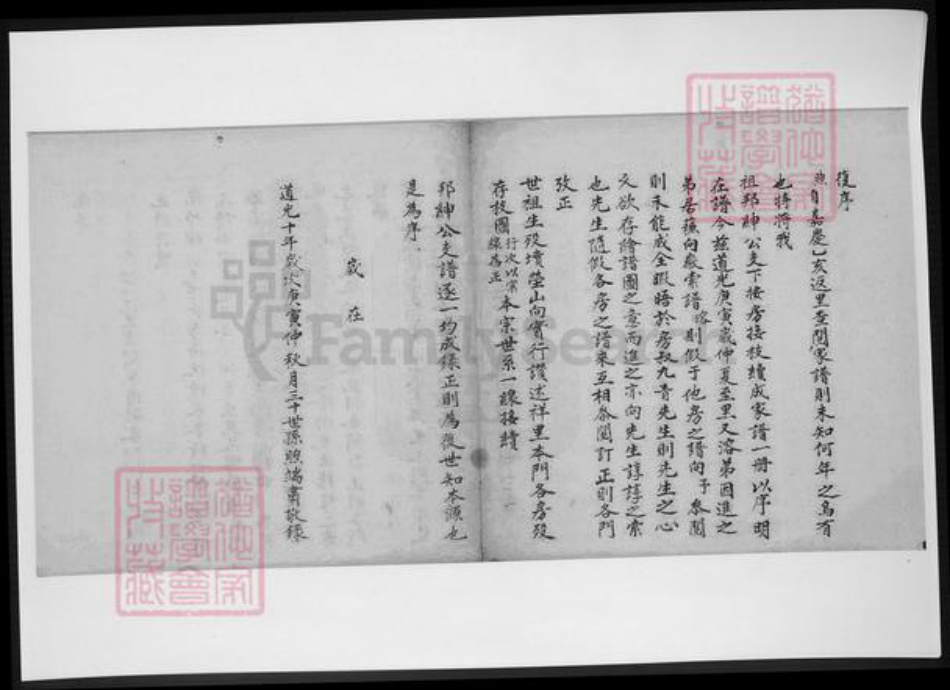 復序
煦自嘉慶乙亥返里查閱家譜則未知何年之烏有
也特將我
祖邦紳公支下接房接枝續成家譜一冊以序明
在譜今茲道光庚寅歲仲夏至里又溶弟因進之
弟居蘓向處索譜 則假于他房之譜向予叅閱
則未能成全暇晤於房叔九青先生則先生之心
又欲存繪譜圖之意而進之亦向先生諄諄之索
也先生隨假各房之譜來互相叅閱訂正則各門
攷正
世祖生歿墳塋山向實行讚述祥里本門各房歿
存枝圖 行次以宗 為正 本宗世系一線接續
邦紳公支譜逐一均成錄正則為後世知本源也
是為序
歲在
道光十年歲次庚寅仲秋月三十世孫煦端肅敬錄
譜學會
特藏
FamilySearch